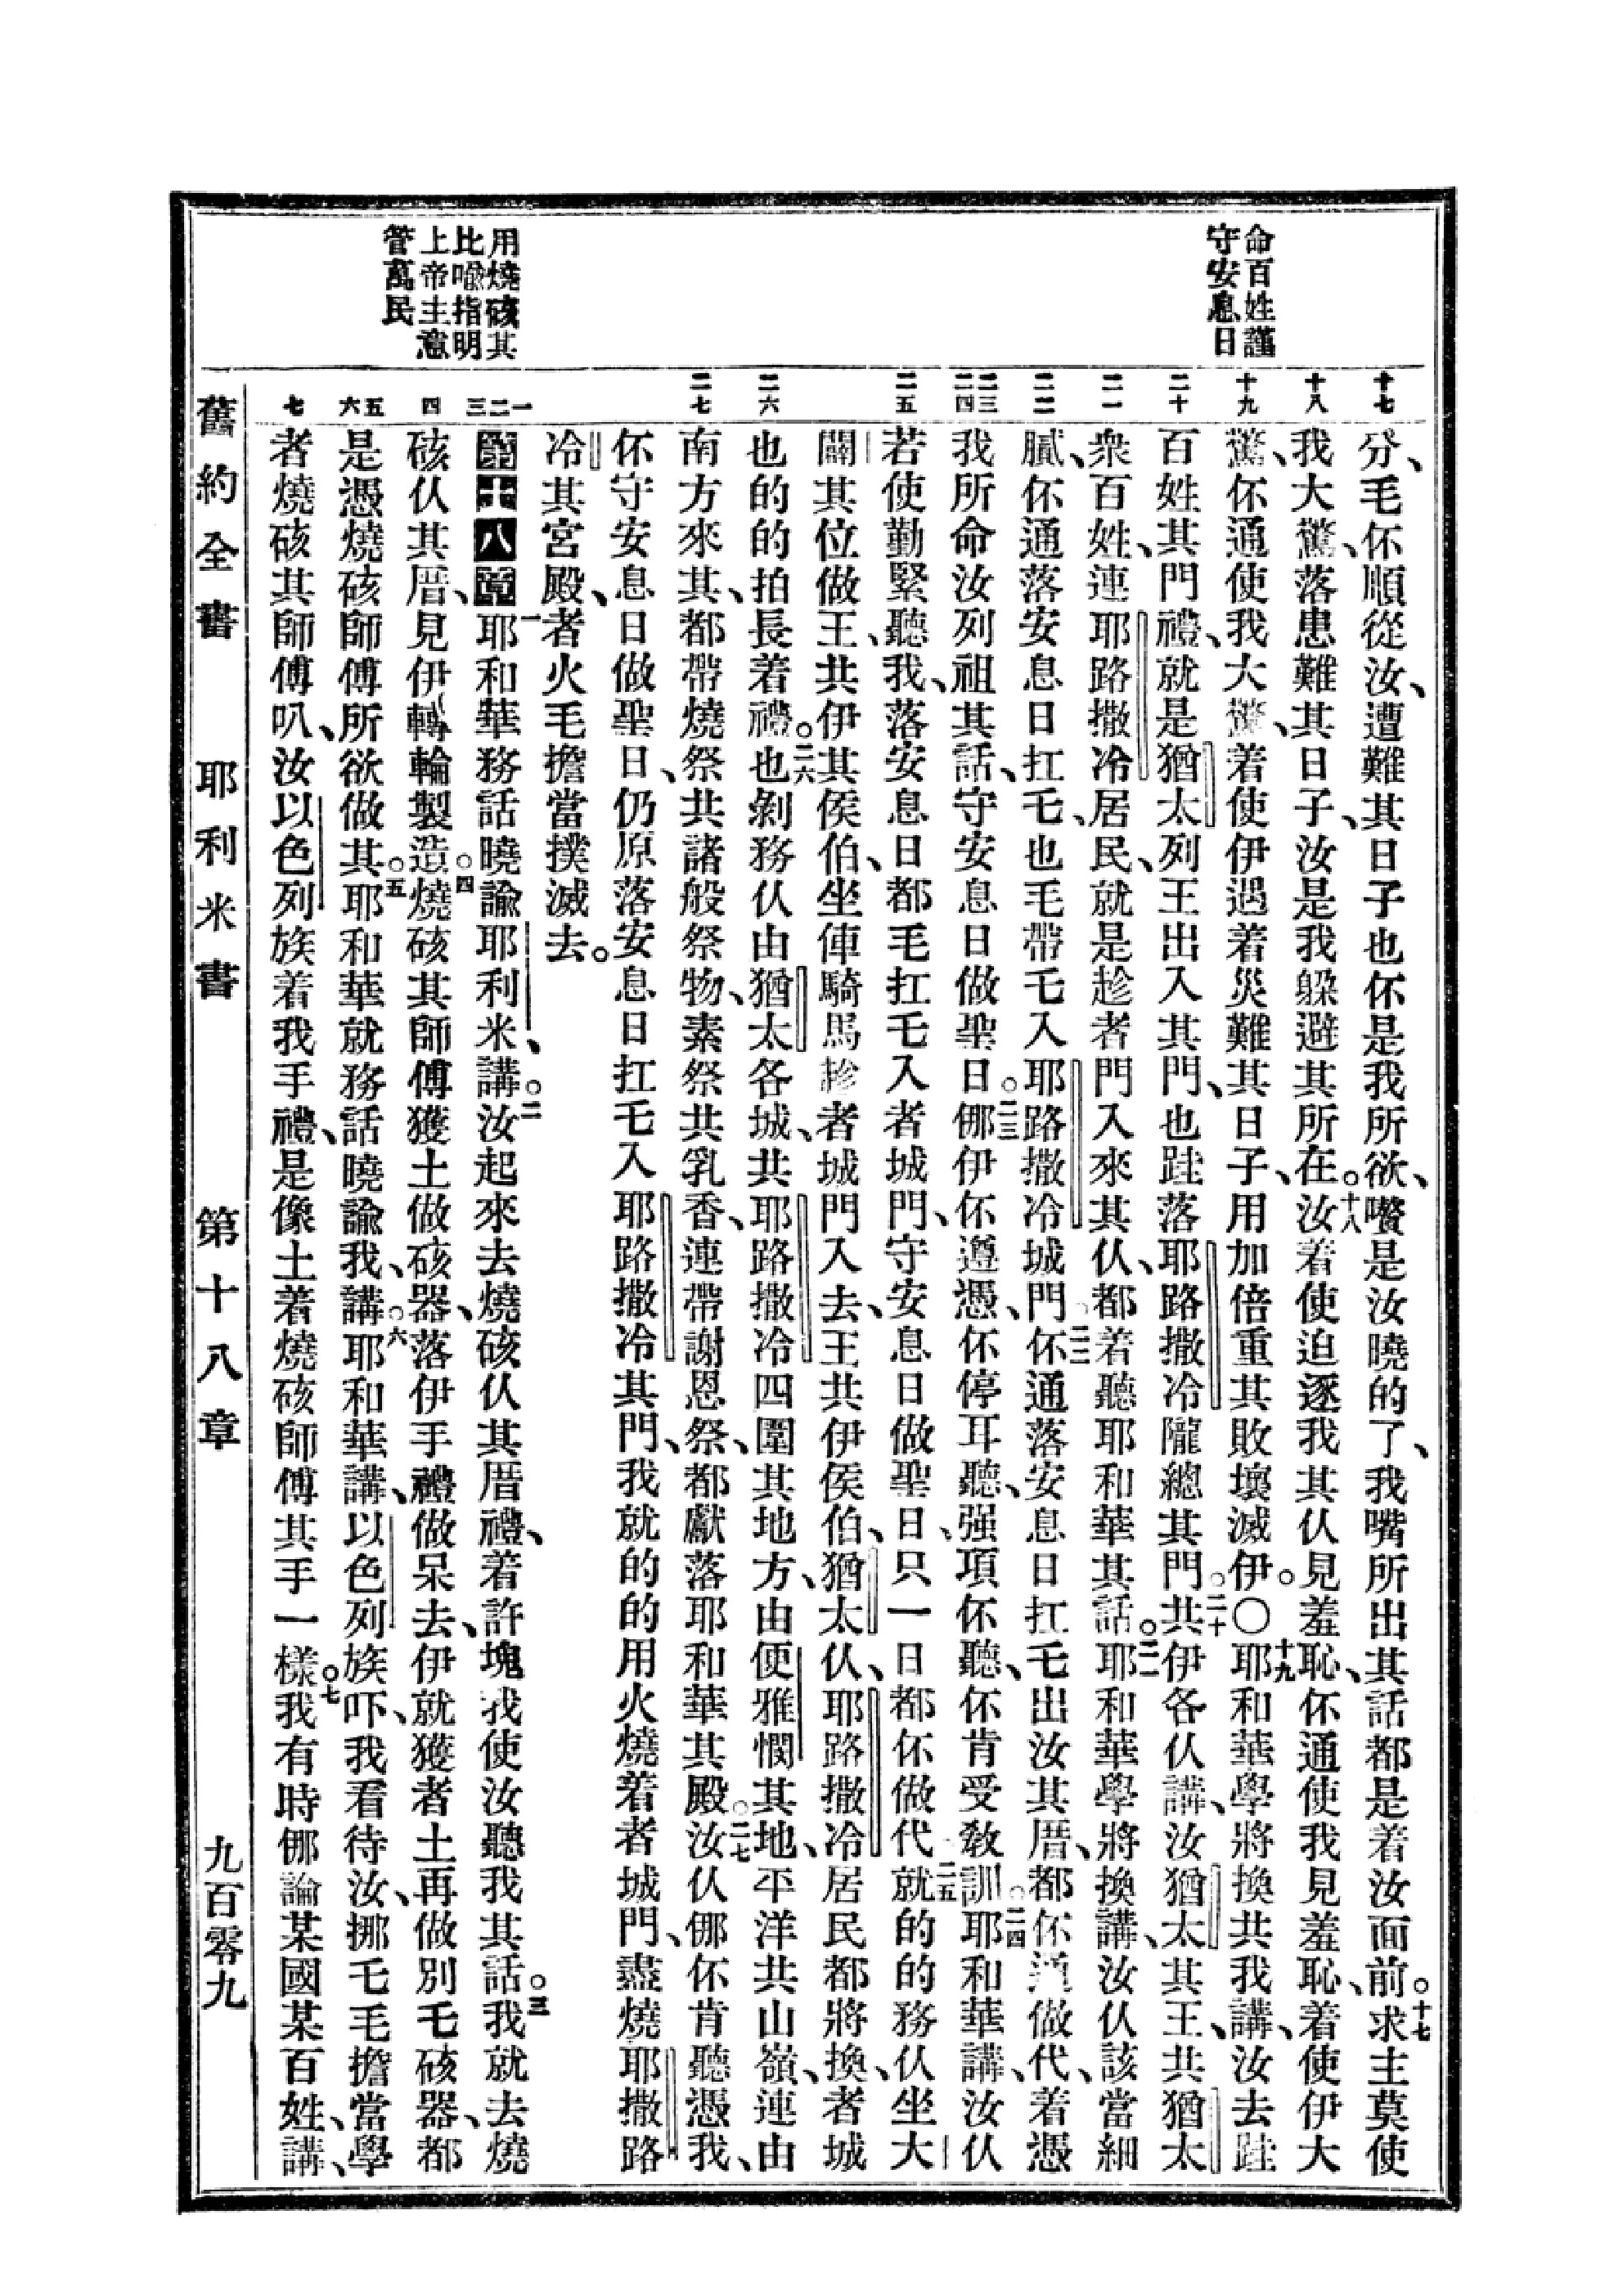 命百姓謹
守安息日
用燒硋其
比喻指明
上帝主意
管萬民
十七
分、毛伓順從汝、遭難其日子也伓是我所欲、嚽是汝曉的了、我嘴所出其話都是着汝面前。十七求主莫使
十八
我大驚、落患難其日子、汝是我躲避其所在。十八汝着使迫逐我其仈見羞恥、伓通使我見羞恥、着使伊大
十九
驚、伓通使我大驚、着使伊遇着災難其日子、用加倍重其敗壞滅伊。〇十九耶和華學將換共我講、汝去跬
二十
百姓其門禮、就是猶太列王出入其門、也跬落耶路撒冷隴總其門。二十共伊各仈講、汝猶太其王、共猶太
二一
衆百姓、連耶路撒冷居民、就是趁者門入來其仈、都着聽耶和華其話。二一耶和華學將換講、汝仈該當細
二二
膩、伓通落安息日扛乇、也毛帶乇入耶路撒冷城門。二二伓通落安息日扛乇出汝其厝、都伓通做代、着憑
二三
二四
我所命汝列祖其話、守安息日做聖日。二三㑚伊伓遵憑、伓停耳聽、强項伓聽、伓肯受敎訓。二四耶和華講、汝仈
二五
若使勤緊聽我、落安息日都毛扛乇入者城門、守安息日做聖日、只一日都伓做代、二五就的的務仈坐大
闢其位做王、共伊其侯伯、坐俥騎馬趁者城門入去、王共伊侯伯、猶太仈、耶路撒冷居民都將換、者城
二六
也的的拍長着禮。二六也剝務仈由猶太各城、共耶路撒冷四圍其地方、由便雅憫其地、平洋共山嶺、連由
二七
南方來其、都帶燒祭共諸般祭物、素祭共乳香、連帶謝恩祭、都獻落耶和華其殿。二七汝仈㑚伓肯聽憑我、
伓守安息日做聖日、仍原落安息日扛乇入耶路撒冷其門、我就的的用火燒着者城門、盡燒耶撒路
冷其宮殿、者火毛擔當撲滅去。
一
二
三
第十八章 一耶和華務話曉諭耶利米、講。二汝起來去燒硋仈其厝禮、着許塊我使汝聽我其話。三我就去燒
四
硋仈其厝、見伊轉輪製造。四燒硋其師傅獲土做硋器、落伊手禮做呆去、伊就獲者土再做別乇硋器、都
五
六
是憑燒硋師傅所欲做其。五耶和華就務話曉諭我、講。六耶和華講、以色列族吓、我看待汝、挪乇毛擔當學
七
者燒硋其師傅叭、汝以色列族着我手禮、是像土着燒硋師傅其手一樣。七我有時㑚論某國某百姓、講、
舊約全書 耶利米書 第十八章 九百零九